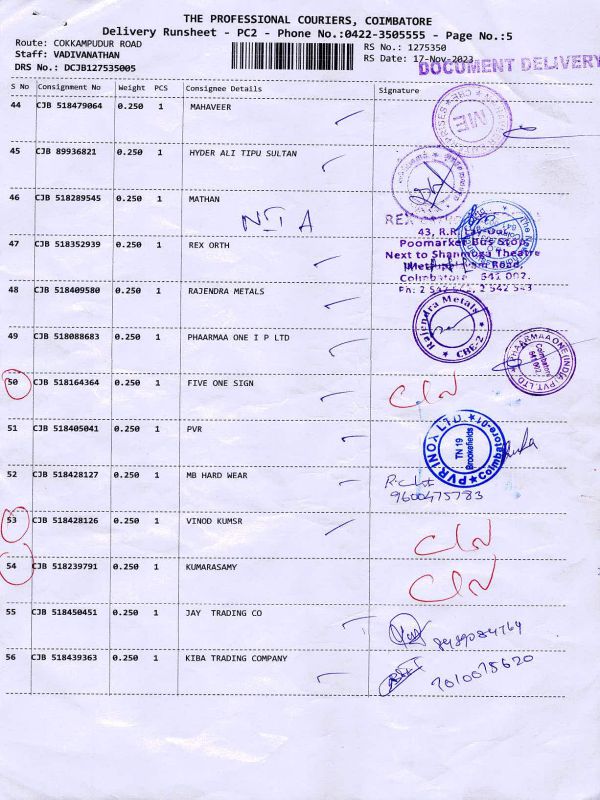 THE PROFESSIONAL COURIERS, COIMBATORE
Delivery Runsheet - PC2 - Phone No.:0422-3505555 - Page No.:5
Route: COKKAMPUDUR ROAD
Staff: VADIVANATHAN
DRS No.: DCJB127535005
RS No.: 1275350
RS Date: 17-Nov-2023
DOCUMENT DELIVERY
S No Consignment No Weight PCS Consignee Details Signature
44 CJB 518479064 0.250 1 MAHAVEER
45 CJB 89936821 0.250 1 HYDER ALI TIPU SULTAN
46 CJB 518289545 0.250 1 MATHAN
NIA
REX
43, R.R.
Poomarket Bus Stop,
Next to Shanmuga Theatre
Road,
Coimbatore 641 002.
47 CJB 518352939 0.250 1 REX ORTH
48 CJB 518409580 0.250 1 RAJENDRA METALS
Rajendra Metals
CBE-2
49 CJB 518088683 0.250 1 PHAARMAA ONE I P LTD
PHAARMAAONE (INDIA) PVT. LTD
Coimbatore
641 002.
50 CJB 518164364 0.250 1 FIVE ONE SIGN
51 CJB 518405041 0.250 1 PVR
PVR INOX LTD
TN 19
Brookefields
Coimbatore-01
52 CJB 518428127 0.250 1 MB HARD WEAR
9600475783
53 CJB 518428126 0.250 1 VINOD KUMSR
54 CJB 518239791 0.250 1 KUMARASAMY
55 CJB 518450451 0.250 1 JAY TRADING CO
56 CJB 518439363 0.250 1 KIBA TRADING COMPANY
7010075620